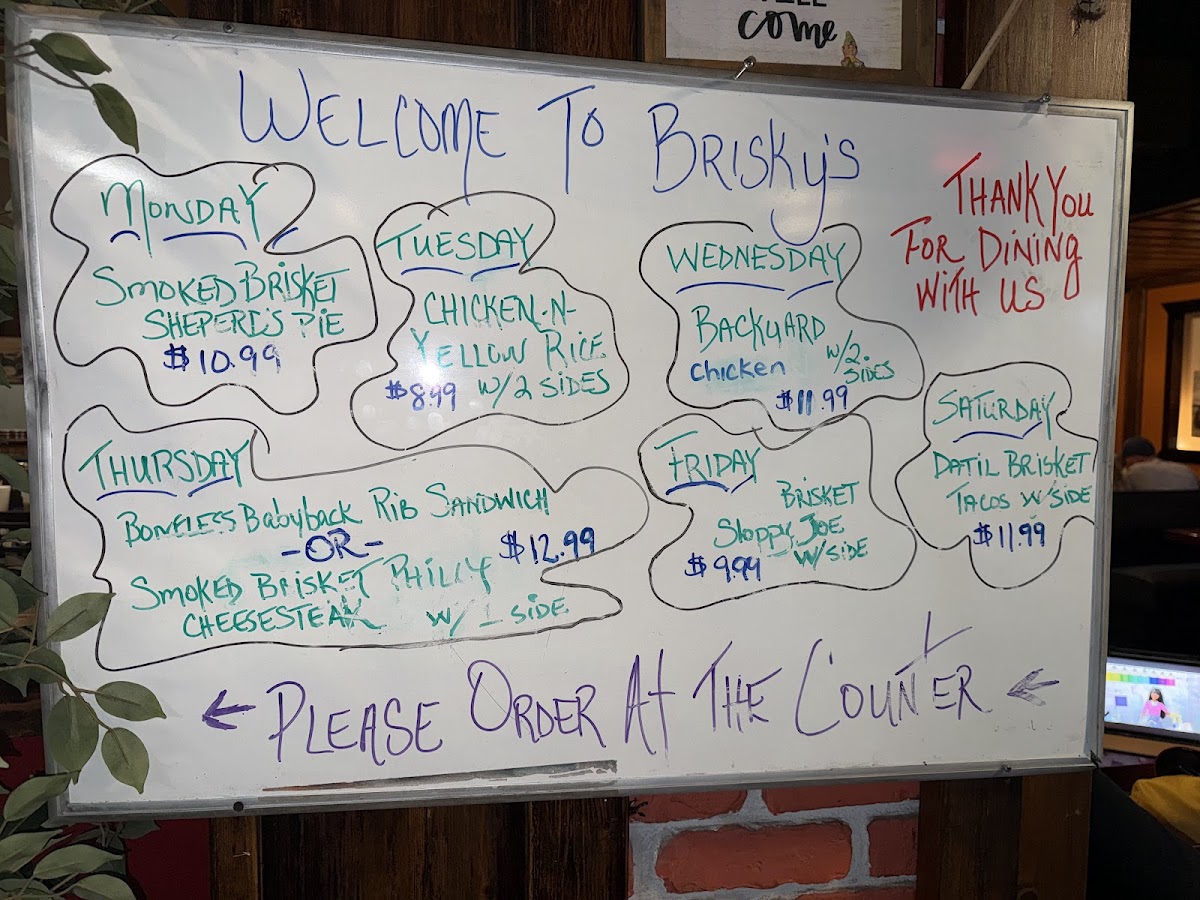 come
WELCOME TO BRISKY'S
THANK YOU
FOR DINING
WITH US
MONDAY
SMOKED BRISKET
SHEPERD'S PIE
$10.99
TUESDAY
CHICKEN-N-
YELLOW RICE
$8.99 W/2 SIDES
WEDNESDAY
BACKYARD
chicken W/2
SIDES
$11.99
THURSDAY
BONELESS Babyback RIB SANDWICH
-OR- $12.99
SMOKED BRISKET PHILLY
CHEESESTEAK W/ 1 SIDE
FRIDAY
BRISKET
Sloppy JOE
$9.99 W/SIDE
SATURDAY
DATIL BRISKET
TACOS W/SIDE
$11.99
← PLEASE ORDER At THE COUNTER ←